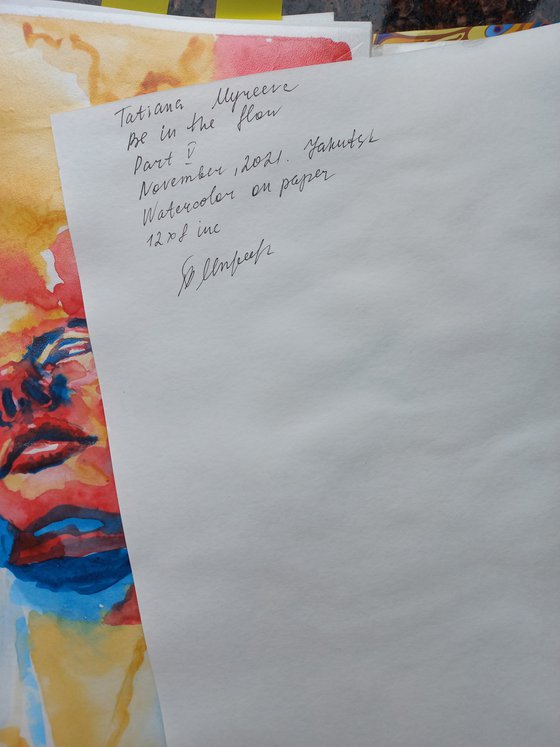 Tatiana Myreeva
Be in the flow
Part V
November, 2021. Yakutsk
Watercolor on paper
12x8 inc